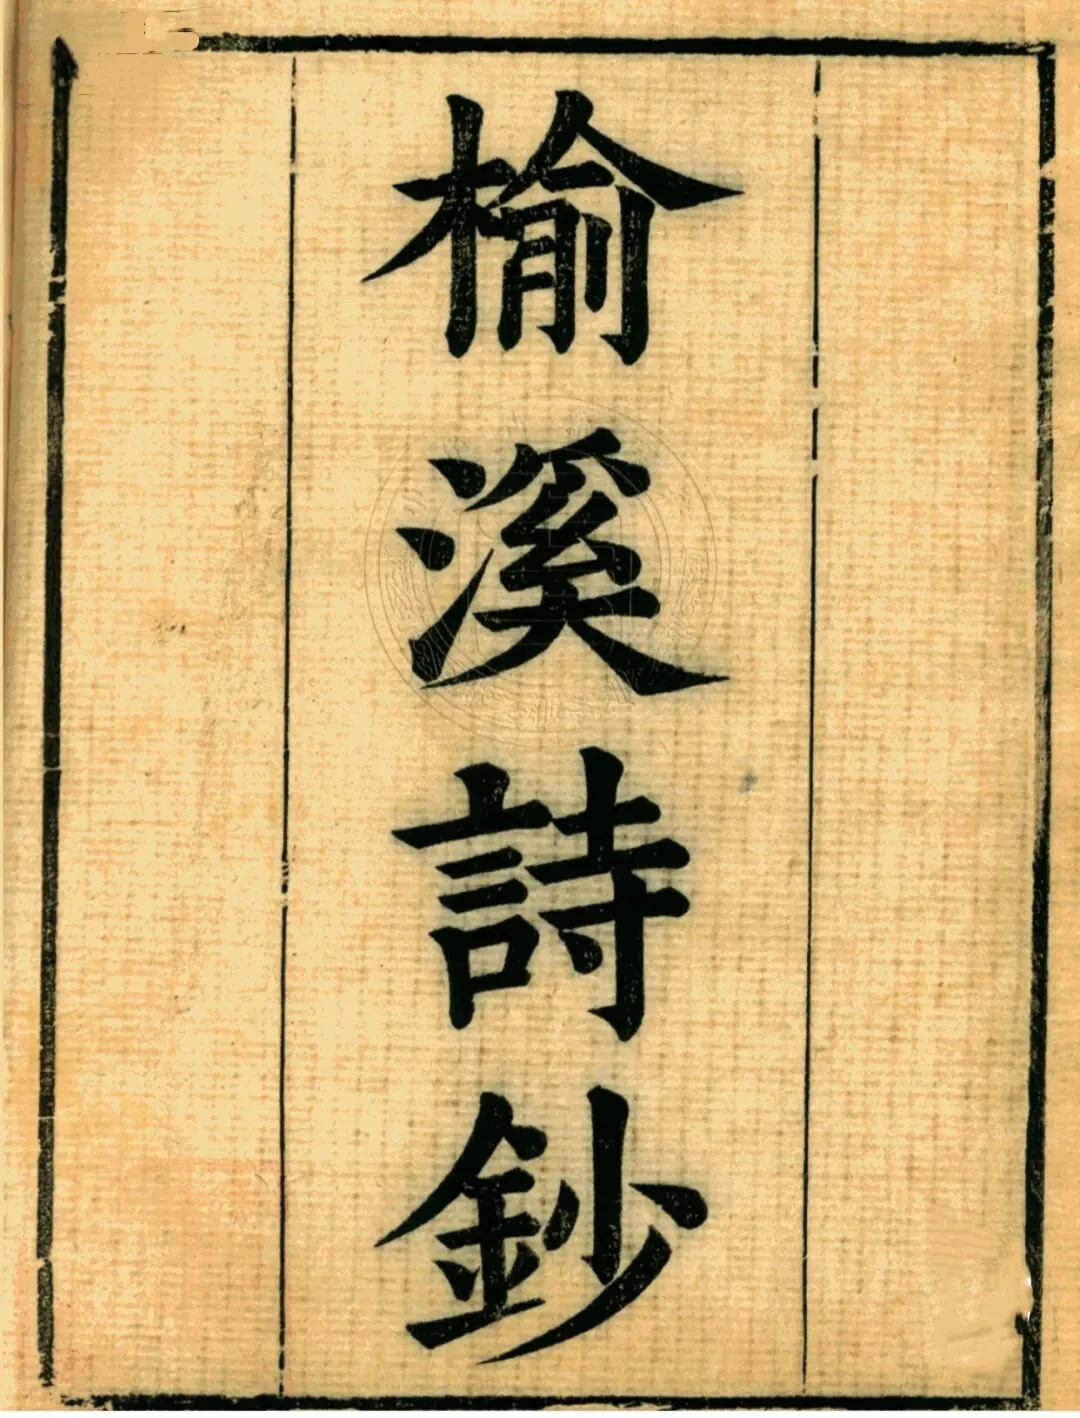 榆溪詩鈔